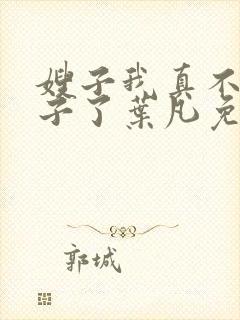 嫂子我真不
子了葉凡免
郭城